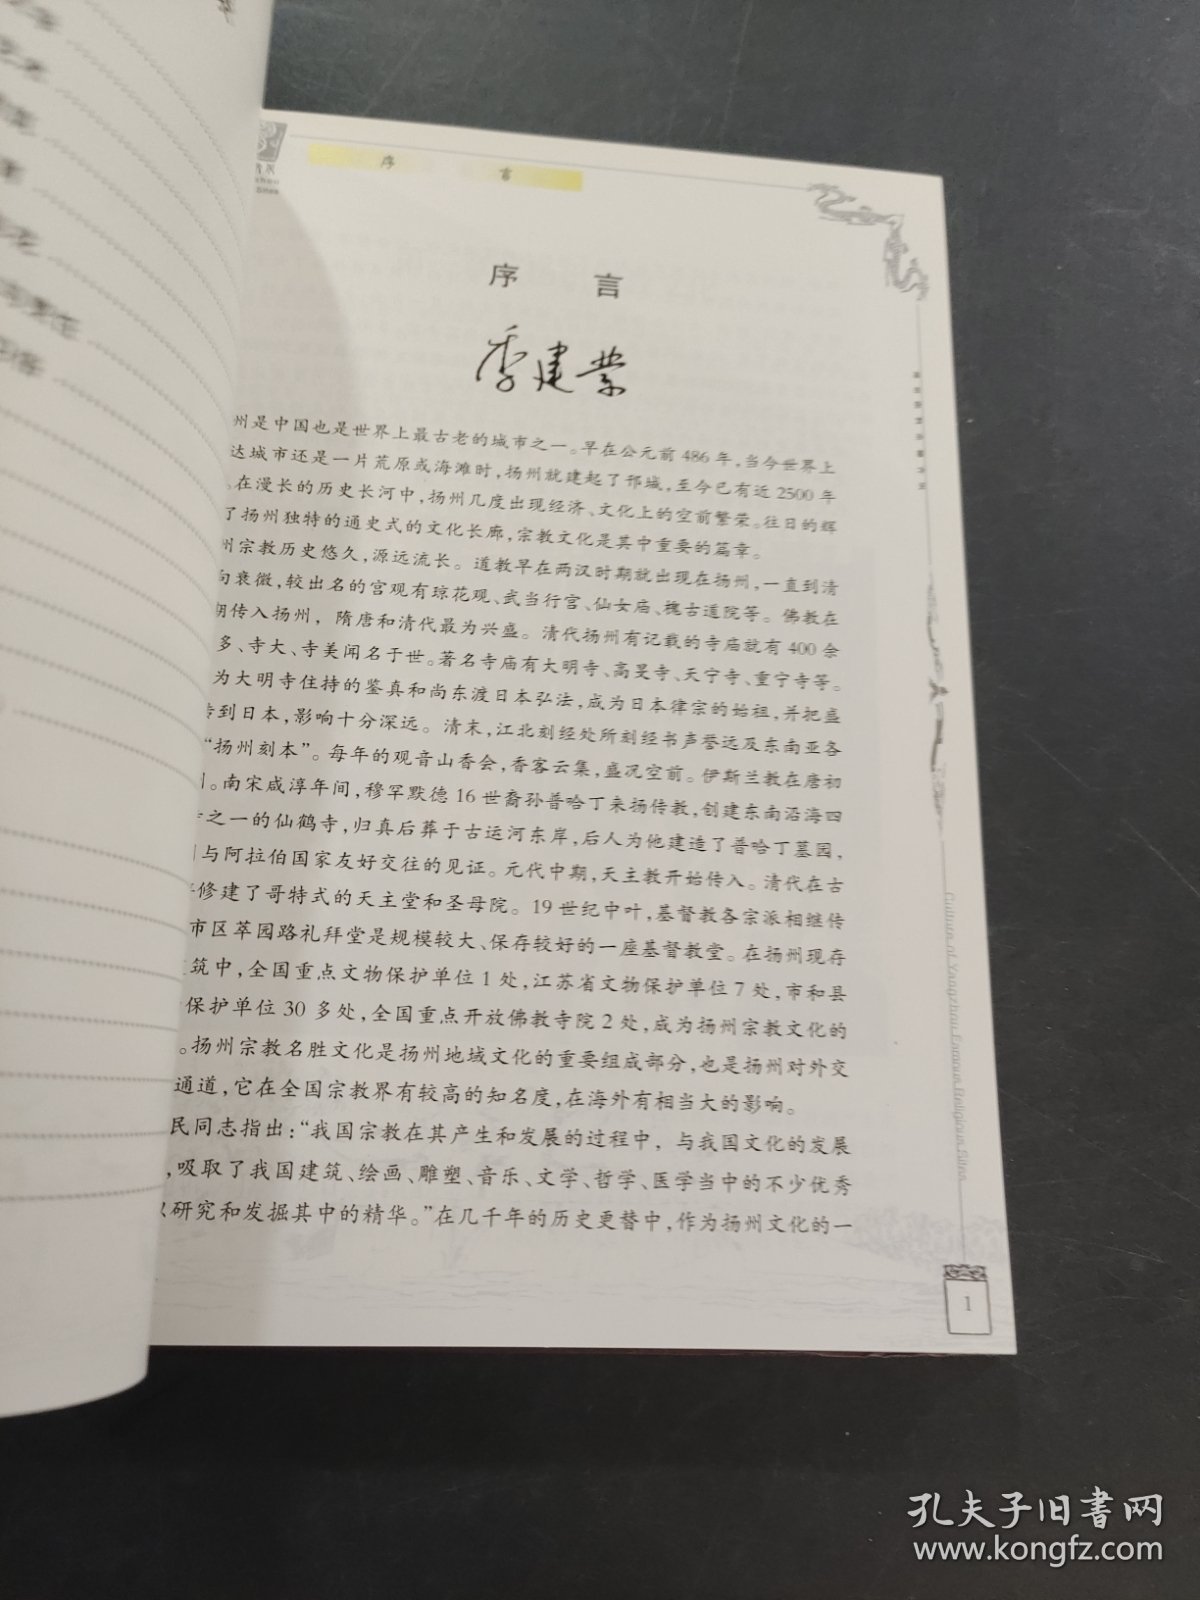 序 言
序 言
季建业
州是中国也是世界上最古老的城市之一。早在公元前 486 年,当今世界上
达城市还是一片荒原或海滩时,扬州就建起了邗城,至今已有近 2500 年
。在漫长的历史长河中,扬州几度出现经济、文化上的空前繁荣。往日的辉
了扬州独特的通史式的文化长廊,宗教文化是其中重要的篇章。
州宗教历史悠久,源远流长。道教早在两汉时期就出现在扬州,一直到清
向衰微,较出名的宫观有琼花观、武当行宫、仙女庙、槐古道院等。佛教在
期传入扬州,隋唐和清代最为兴盛。清代扬州有记载的寺庙就有 400 余
多、寺大、寺美闻名于世。著名寺庙有大明寺、高旻寺、天宁寺、重宁寺等。
为大明寺住持的鉴真和尚东渡日本弘法,成为日本律宗的始祖,并把盛
传到日本,影响十分深远。清末,江北刻经处所刻经书声誉远及东南亚各
“扬州刻本”。每年的观音山香会,香客云集,盛况空前。伊斯兰教在唐初
。南宋咸淳年间,穆罕默德 16 世裔孙普哈丁来扬传教,创建东南沿海四
之一的仙鹤寺,归真后葬于古运河东岸,后人为他建造了普哈丁墓园,
与阿拉伯国家友好交往的见证。元代中期,天主教开始传入。清代在古
修建了哥特式的天主堂和圣母院。19 世纪中叶,基督教各宗派相继传
市区萃园路礼拜堂是规模较大、保存较好的一座基督教堂。在扬州现存
筑中,全国重点文物保护单位 1 处,江苏省文物保护单位 7 处,市和县
保护单位 30 多处,全国重点开放佛教寺院 2 处,成为扬州宗教文化的
。扬州宗教名胜文化是扬州地域文化的重要组成部分,也是扬州对外交
通道,它在全国宗教界有较高的知名度,在海外有相当大的影响。
民同志指出:“我国宗教在其产生和发展的过程中,与我国文化的发展
,吸取了我国建筑、绘画、雕塑、音乐、文学、哲学、医学当中的不少优秀
以研究和发掘其中的精华。”在几千年的历史更替中,作为扬州文化的一
Culture of Yangzhou Famous Religious Sites
1
孔夫子旧书网
www.kongfz.com